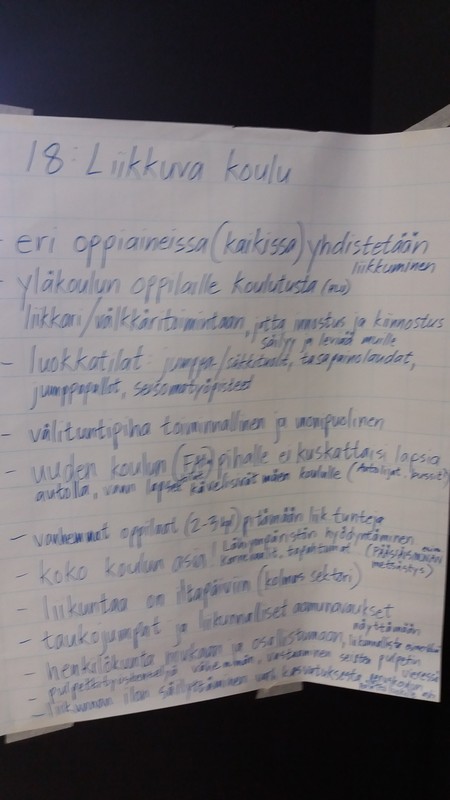 18: Liikkuva koulu
- eri oppiaineissa (kaikissa) yhdistetään
liikkuminen
- yläkoulun oppilaille koulutusta
liikkari/välkkäritoimintaan, jotta innostus ja kiinnostus
säilyy ja leviää muille
- luokkatilat: jumppa/säkkituolit, tasapainolaudat,
jumppapallot, seisomatyöpisteet
- välituntipiha toiminnallinen ja monipuolinen
- uuden koulun pihalle ei kuskattaisi lapsia
autolla, vaan lapset kävelisivät koululle
- vanhemmat oppilaat (2-3 kpl) pitämään liik.tunteja
- koko koulun asia! Lähiympäristön hyödyntäminen
tapahtumat
metsästys)
- liikuntaa on iltapäivin (kolmas sektori)
- taukojumpat ja liikunnalliset aamunavaukset
- henkilökunta mukaan ja osallistumaan, näyttämään
liikunnallista esimerkkiä
- pulpettityöskentelyä vähemmän, vastaaminen seisten pulpetin
vieressä
- liikunnan ilon säilyttäminen